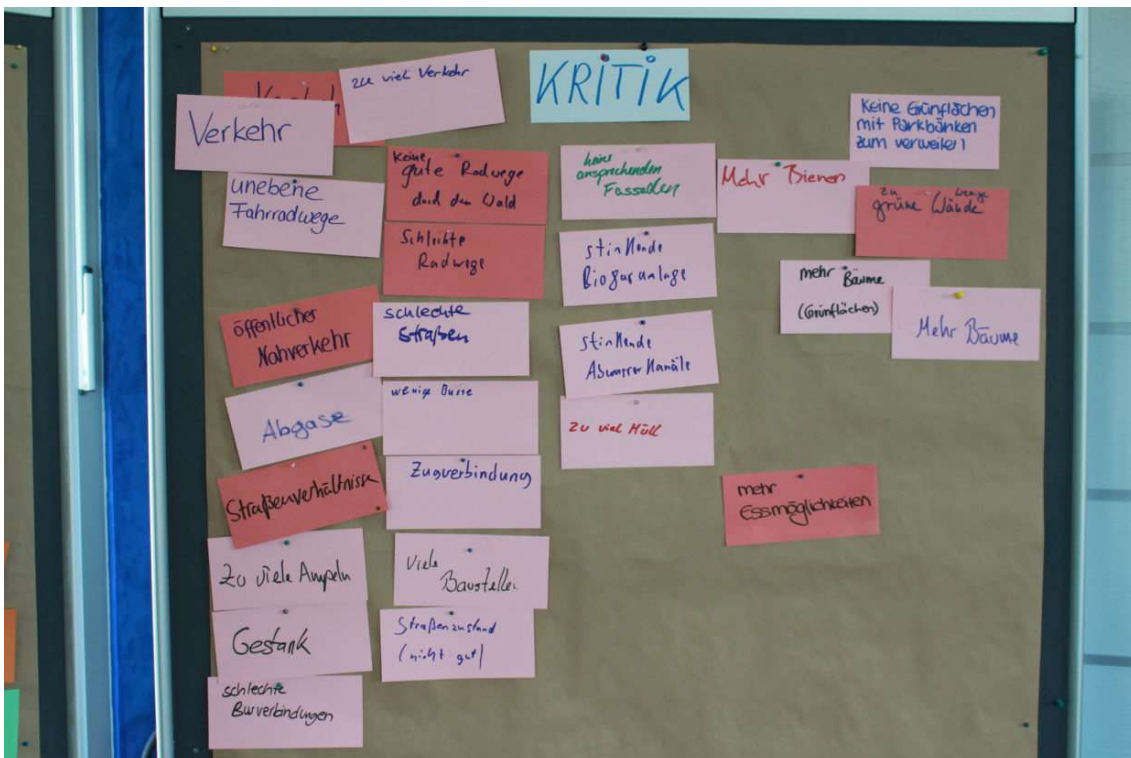 KRITIK
zu viel Verkehr
Verkehr
unebene
Fahrradwege
öffentlicher
Nahverkehr
Abgase
Straßenverhältnisse
Zu viele Ampeln
Gestank
schlechte
Busverbindungen
keine
gute Radwege
durch den Wald
Schlechte
Radwege
schlechte
Straßen
wenige Busse
Zugverbindung
Viele
Baustellen
Straßenzustand
(nicht gut)
keine
ansprechenden
Fassaden
stinkende
Biogasanlage
stinkende
Abwasserkanäle
zu viel Müll
Mehr Bienen
Keine Grünflächen
mit Parkbänken
zum verweilen!
zu wenig
grüne Wände
mehr Bäume
(Grünflächen)
Mehr Bäume
mehr
Essmöglichkeiten